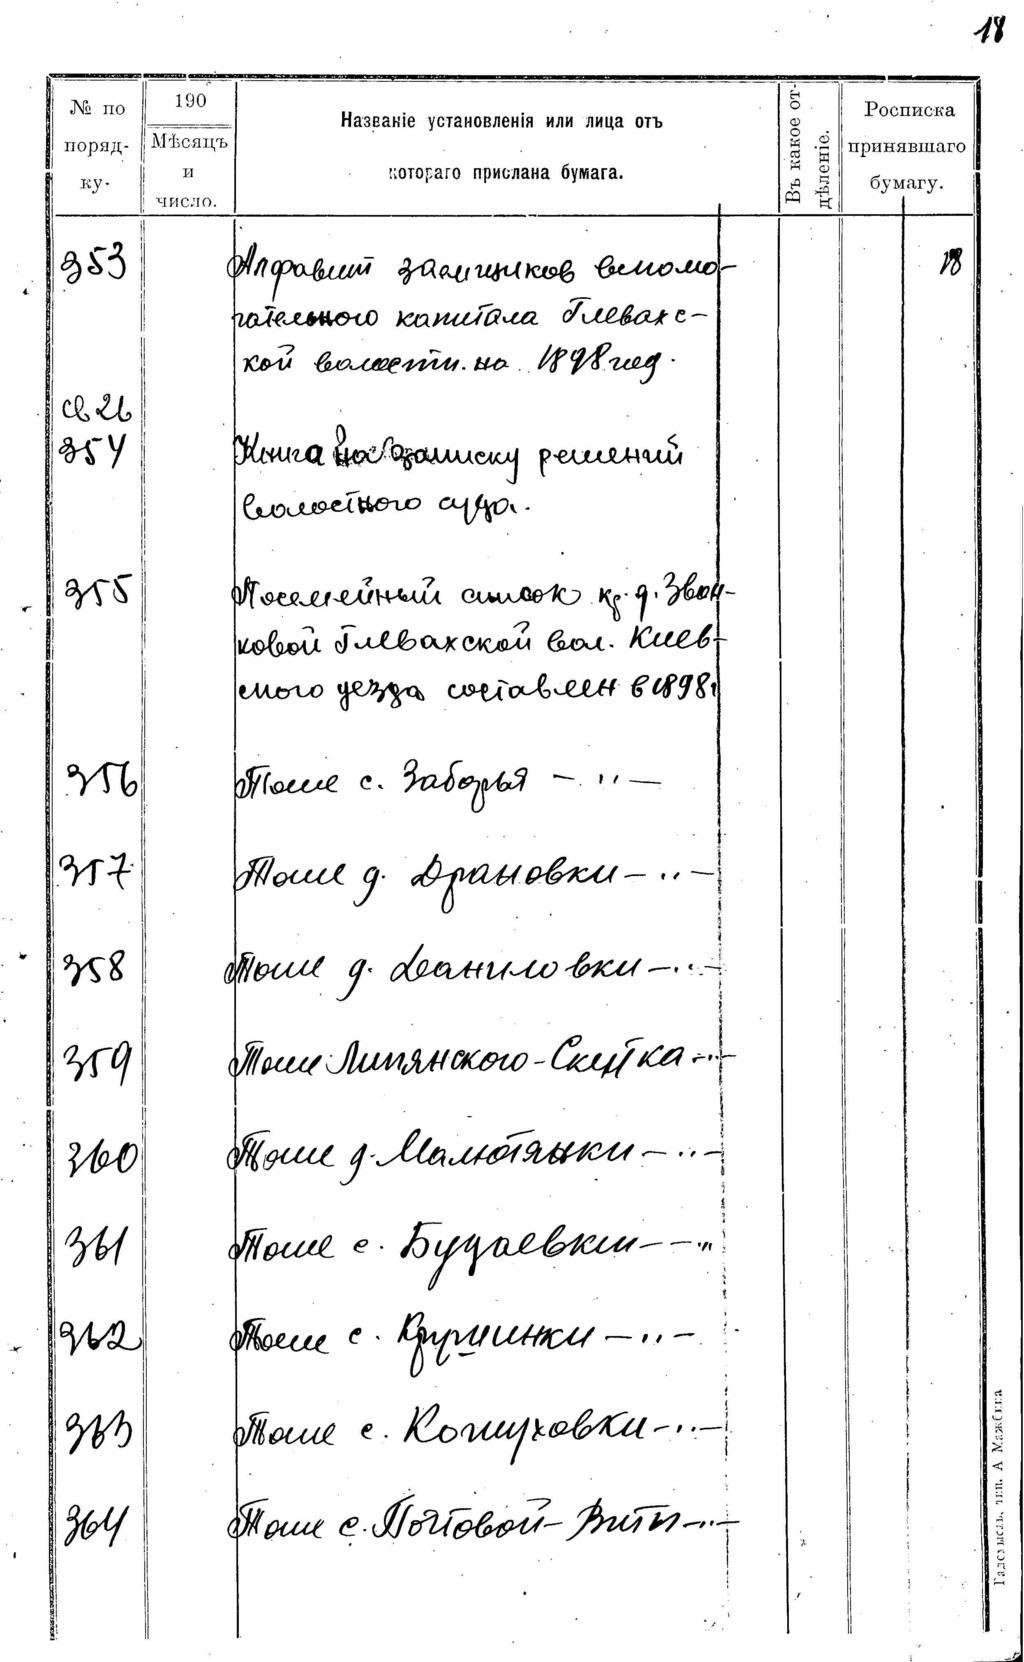 18
№ по поряд-ку.
190
Мѣсяцъ и число.
Названіе установленія или лица отъ
котораго прислана бумага.
Въ какое от-дѣленіе.
Росписка принявшаго бумагу.
353 Алфавит заемщиков вспомо-
гательного капитала Глевахс-
кой волости. на 1898 год.
св 26
354 Книга на записку решений
волостного суда.
355 Посемейный список кр. д. Звон-
ковой Глевахской вол. Киев-
ского уезда составлен в 1898 г
356 Тоже с. Заборья — " —
357 Тоже д. Драновки — " —
358 Тоже д. Даниловки — " —
359 Тоже Липянского-Скитка — " —
360 Тоже д. Малютянки — " —
361 Тоже с. Будаевки — — "
362 Тоже с. Крушинки — " —
363 Тоже с. Кожуховки — " —
364 Тоже с. Почтовой-Виты — " —
18
Радомысль, тип. А